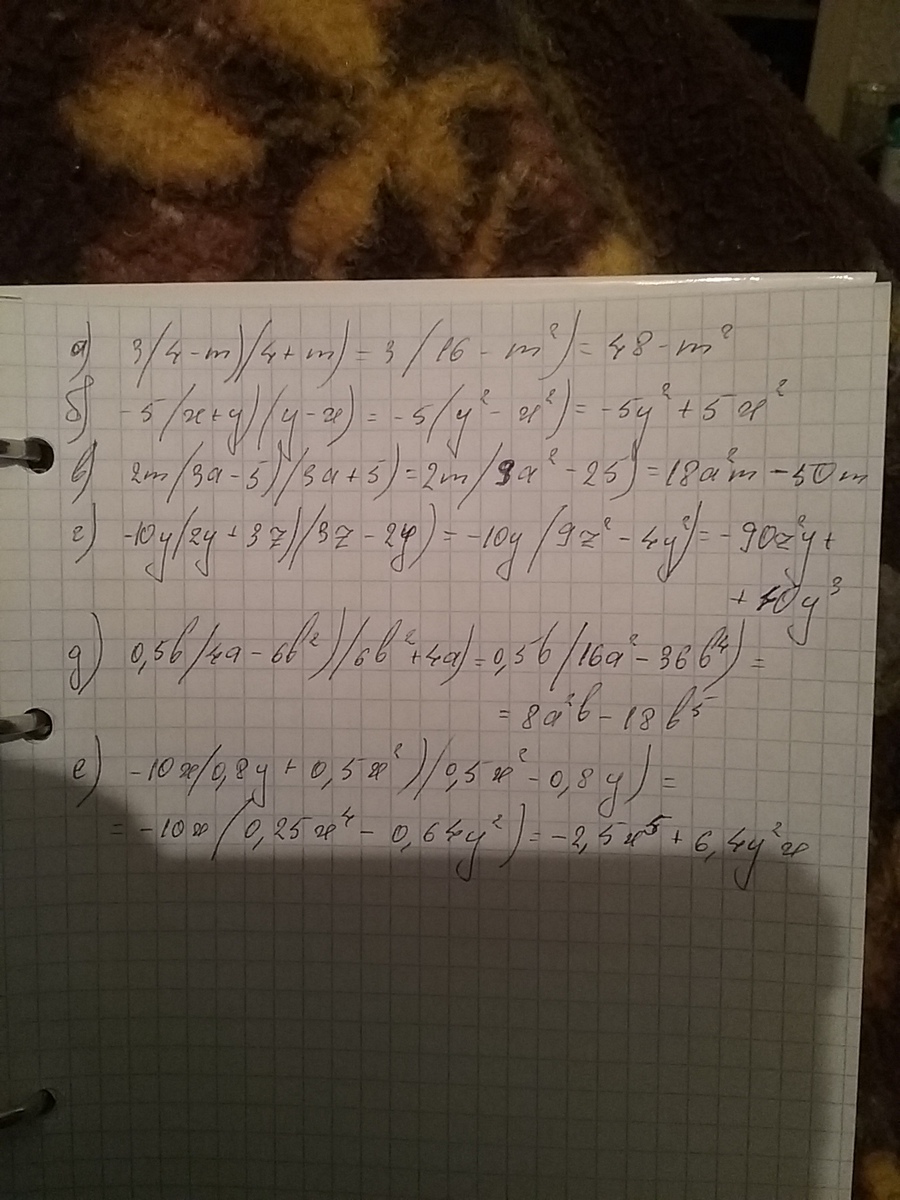 а) 3(4-m)(4+m) = 3(16 - m²) = 48 - m²
б) -5(x+y)(y-x) = -5(y² - x²) = -5y² + 5x²
в) 2m(3a-5)(3a+5) = 2m(9a² - 25) = 18a²m - 50m
г) -10y(2y + 3z)(3z - 2y) = -10y(9z² - 4y²) = -90z²y +
+ 40y³
д) 0,5b(4a - 6b²)(6b² + 4a) = 0,5b(16a² - 36b⁴) =
= 8a²b - 18b⁵
е) -10x(0,8y + 0,5x²)(0,5x² - 0,8y) =
= -10x(0,25x⁴ - 0,64y²) = -2,5x⁵ + 6,4y²x